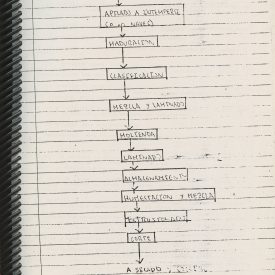 APILADO A INTEMPERIE
NAVES)
MADURACION
CLASIFICACION
MEZCLA Y LAMINADO
MOLIENDA
LAMINADO
ALMACENAMIENTO
HUMECTACION Y MEZCLA
EXTRUSIONADO
CORTE
A SECADO